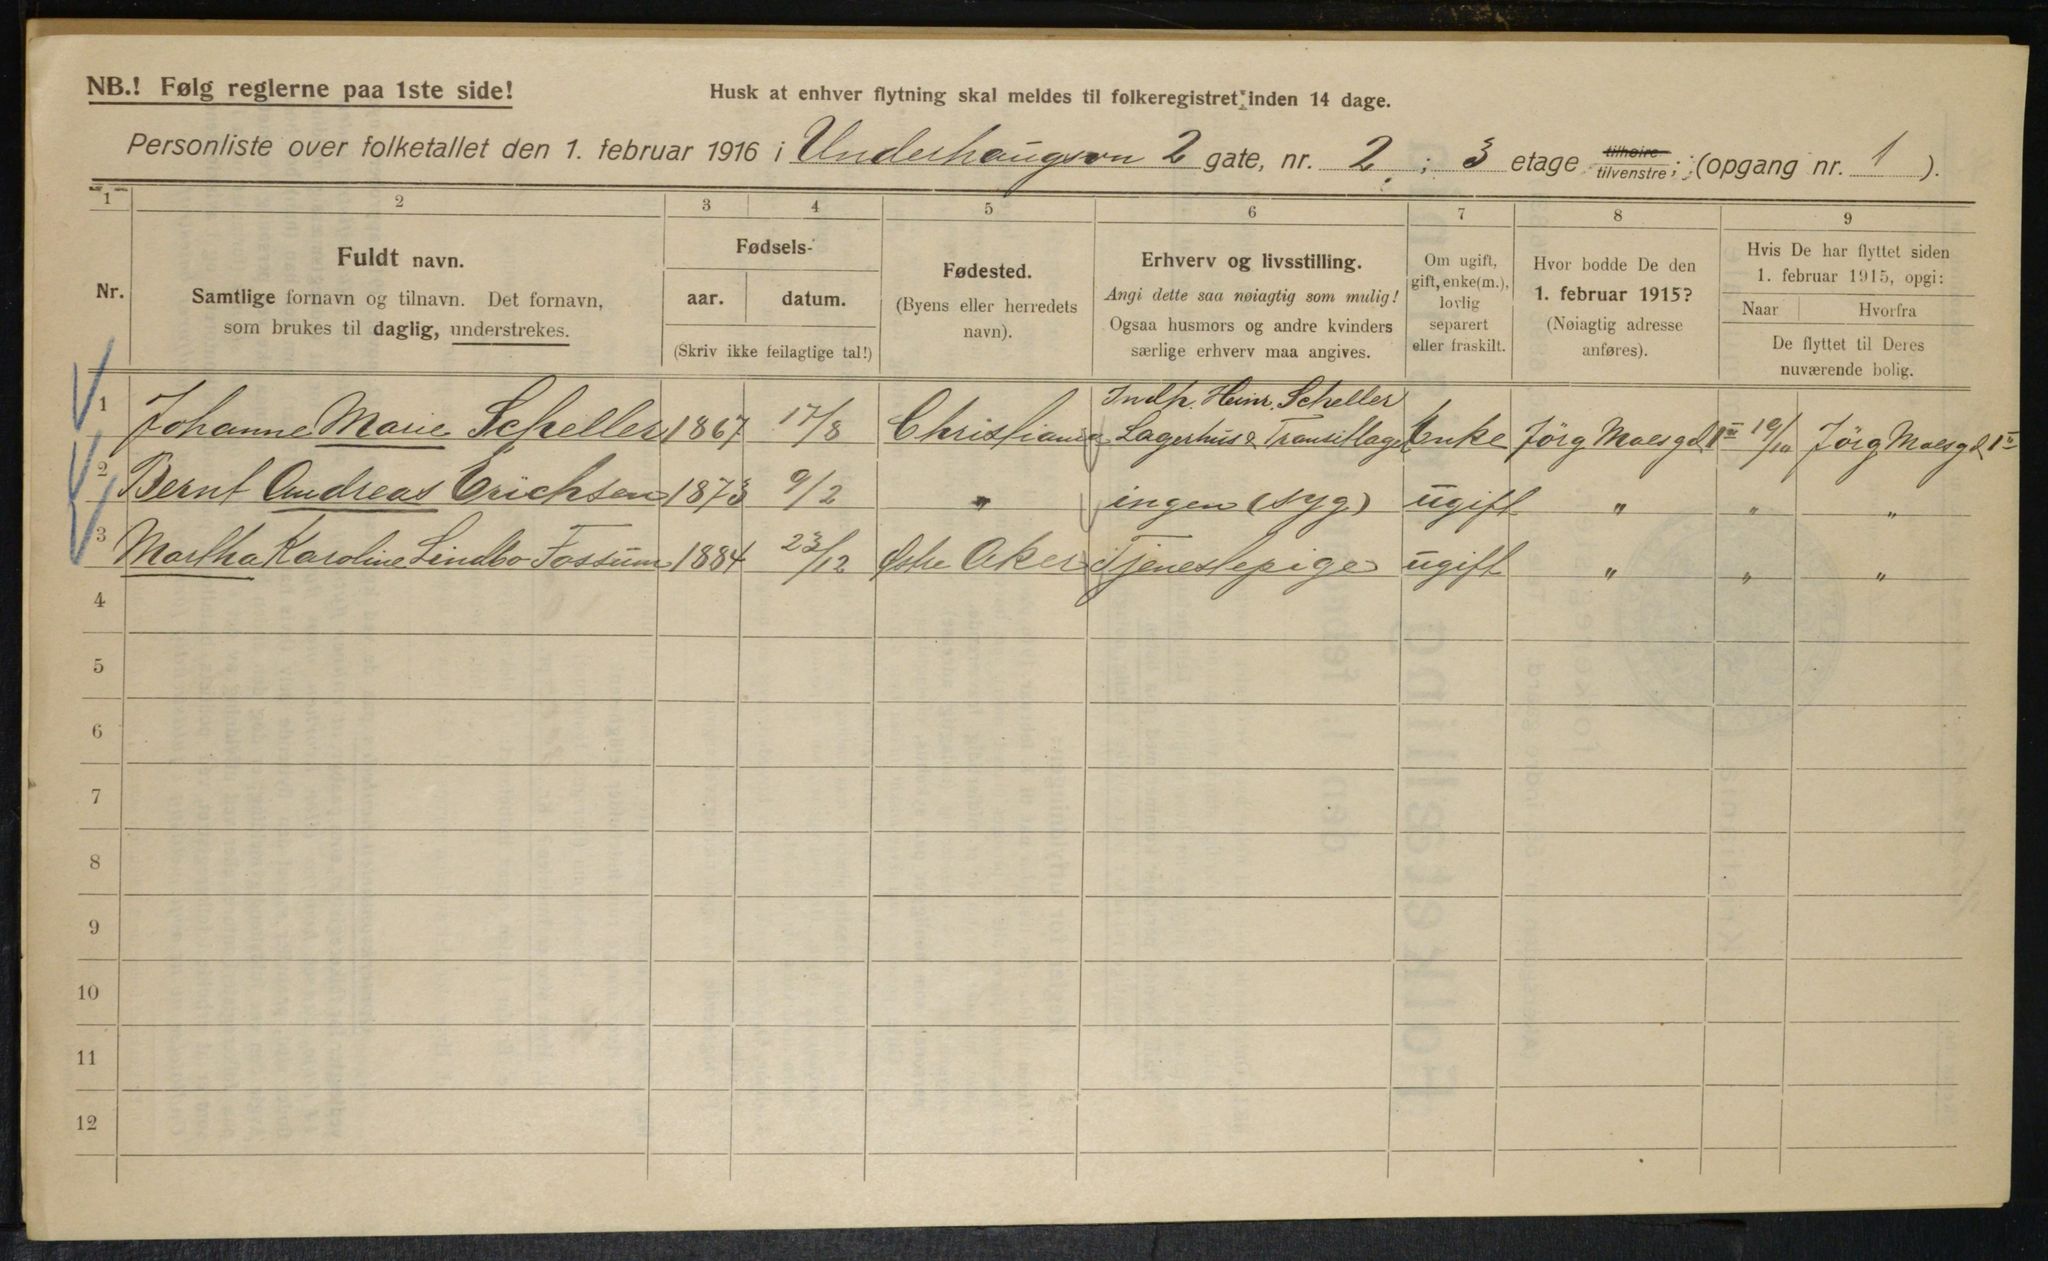 NB.! Følg reglerne paa 1ste side!
Husk at enhver flytning skal meldes til folkeregistret inden 14 dage.
Personliste over folketallet den 1. februar 1916 i Underhaugsvn 2 gate, nr. 2 ; 3 etage tilhøire tilvenstre ; (opgang nr. 1 ).
1 2 3 4 5 6 7 8 9
Nr.
Fuldt navn.
Samtlige fornavn og tilnavn. Det fornavn,
som brukes til daglig, understrekes.
Fødsels-
aar. datum.
(Skriv ikke feilagtige tal!)
Fødested.
(Byens eller herredets
navn).
Erhverv og livsstilling.
Angi dette saa nøiagtig som mulig!
Ogsaa husmors og andre kvinders
særlige erhverv maa angives.
Om ugift,
gift, enke(m.),
lovlig
separert
eller fraskilt.
Hvor bodde De den
1. februar 1915?
(Nøiagtig adresse
anføres).
Hvis De har flyttet siden
1. februar 1915, opgi:
Naar Hvorfra
De flyttet til Deres
nuværende bolig.
Indh. Heinr. Scheller
1 Johanne Marie Scheller 1867 17/8 Christiania Lagerhus & Transitlager Enke Jörg Moesgd 1 II 10/10 Jörg Moesgd 1 II
2 Bernt Andreas Erichsen 1873 9/2 " ingen (syg) ugift " " "
3 Martha Karoline Lindbo Fossum 1884 23/12 Østre Aker Tjenestepige ugift " " "
4
5
6
7
8
9
10
11
12